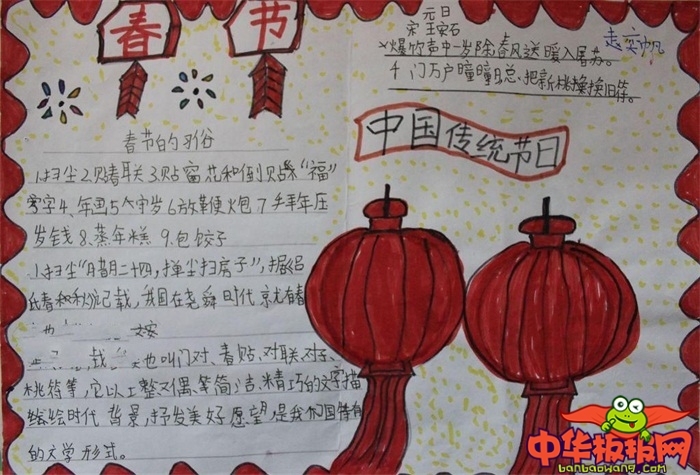 春节
元日
宋 王安石
爆竹声中一岁除春风送暖入屠苏。
千门万户曈曈日总把新桃换旧符。
中国传统节日
春节的习俗
1.扫尘2.贴春联3.贴窗花和倒贴"福"
字4、年画5 守岁6.放鞭炮7.拜年压
岁钱8.蒸年糕 9.包饺子
1.扫尘"腊月二十四,掸尘扫房子",据吕
氏春秋记载,我国在尧舜时代就有春
也叫门对、春贴、对联、对子、
桃符等,它以工整对偶、简洁、精巧的文字描
绘时代 背景,抒发美好愿望,是我国特有
的文学形式。
中华板报网
banbaowang.com